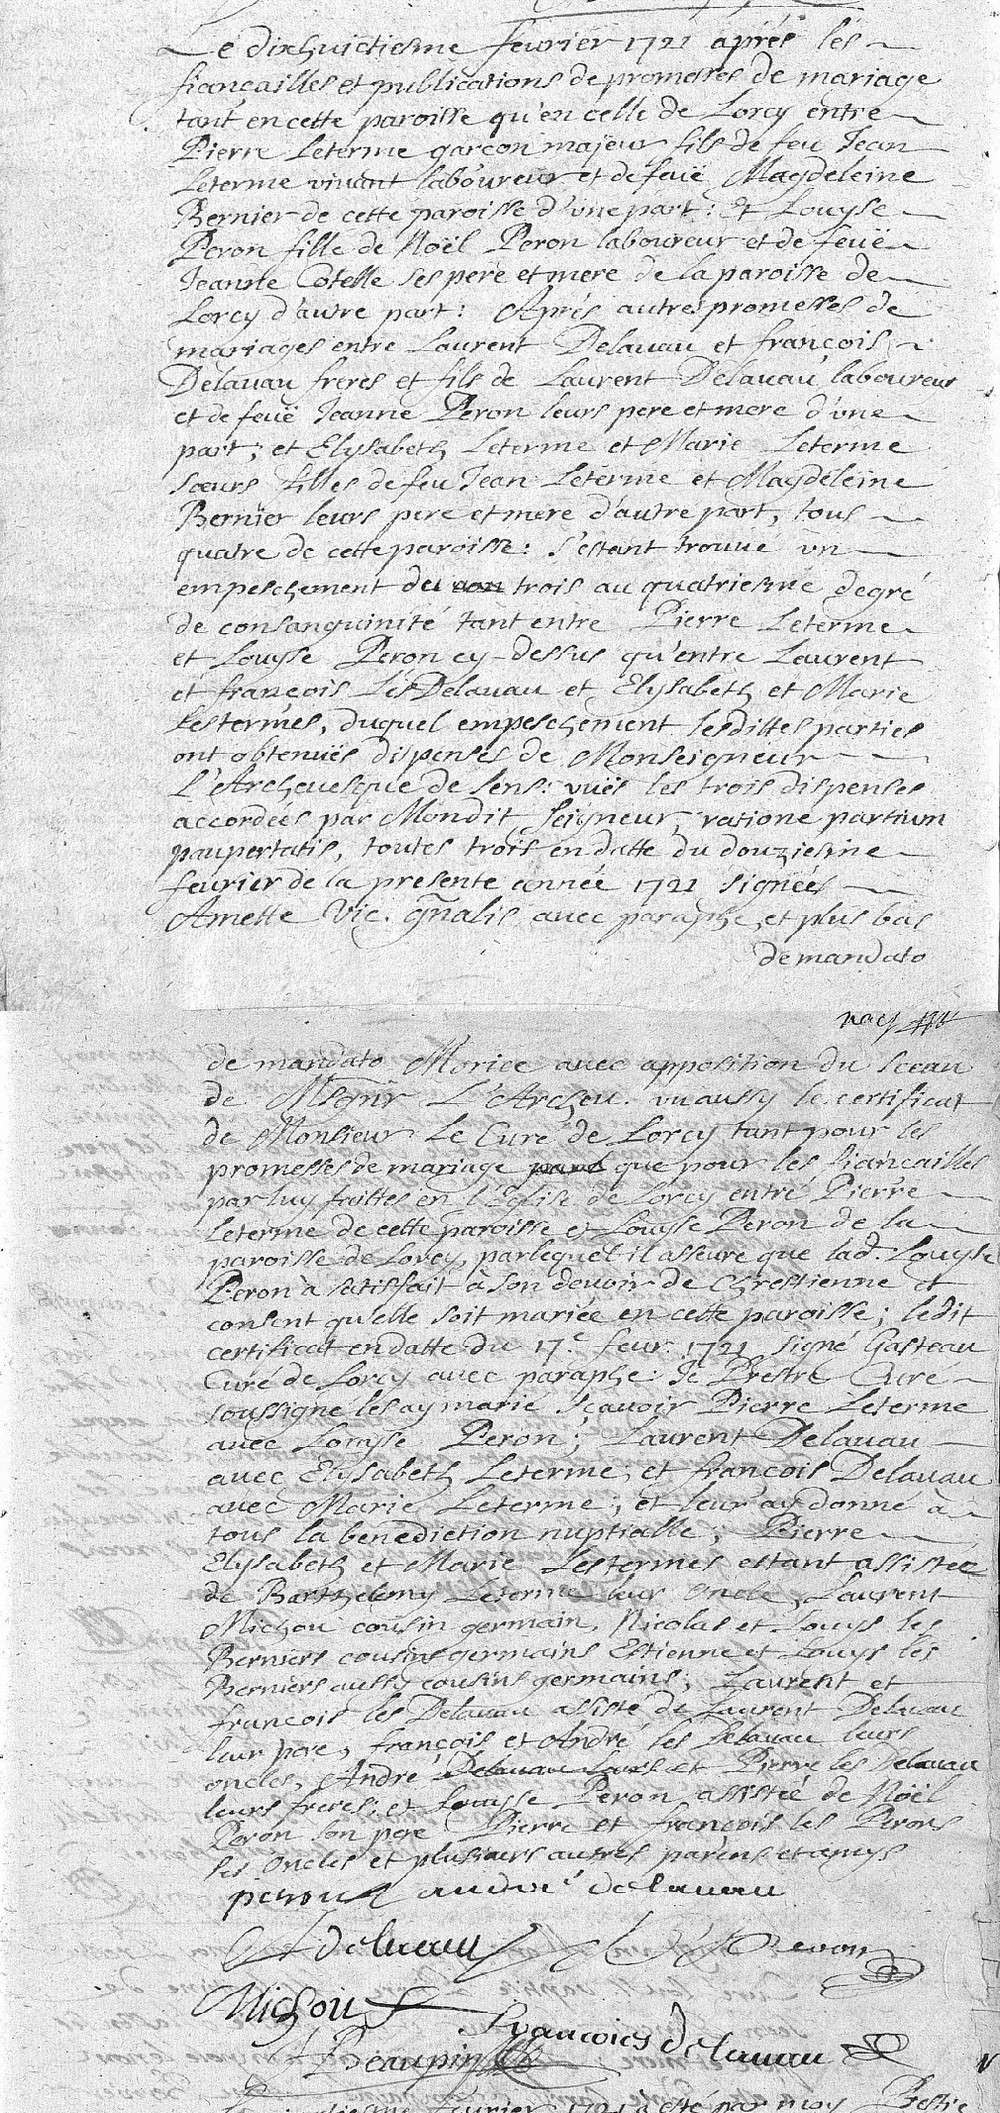 Le dixhuictiesme feurier 1721 aprés les
fiançailles et publications de promesses de mariage
tant en cette paroisse qu'en celle de Lorcy entre
Pierre Leterme garcon majeur fils de feu Jean
Leterme vivant laboureur et de feuë Magdeleine
Bernier de cette paroisse d'une part: et Louyse
Peron fille de Noël Peron laboureur et de feuë
Jeanne Cotelle ses pere et mere de la paroisse de
Lorcy d'autre part: Aprés autres promesses de
mariages entre Laurent Delauau et françois
Delauau freres et fils de Laurent Delauau laboureur
et de feuë Jeanne Peron leurs pere et mere d'une
part; et Elysabeth Leterme et Marie Leterme
sœurs filles de feu Jean Leterme et Magdeleine
Bernier leurs pere et mere d'autre part, tous
quatre de cette paroisse: s'estant trouué un
empeschement du trois au quatriesme degré
de consanguinité tant entre Pierre Leterme
et Louyse Peron cy-dessus qu'entre Laurent
et françois Les Delauau et Elysabeth et Marie
Lestermes, duquel empeschement lesdittes parties
ont obtenuës dispenses de Monseigneur
L'Archeuesque de Sens: vuës les trois dispenses
accordées par Mondit Seigneur, ratione partium
paupertatis, toutes trois en datte du douziesme
feurier de la presente année 1721 signées
Amette Vic. gnalis auec paraphe, et plus bas
de mandato
de mandato Morice auec apposition du sceau
de Msgnr L'Archeu. vu aussy le certificat
de Monsieur Le Curé de Lorcy tant pour les
promesses de mariage que pour les fiançailles
par luy faittes en l'Eglise de Lorcy entre Pierre
Leterme de cette paroisse et Louyse Peron de la
paroisse de Lorcy, par lequel il asseure que lad. Louyse
Peron a satisfait à son deuoir de Chrestienne et
consent qu'elle soit mariée en cette paroisse; ledit
certificat en datte du 17.e feur. 1721 signé Gasteau
Curé de Lorcy auec paraphe: Je Prestre Curé
soussigne les ay marié sçauoir Pierre Leterme
auec Louyse Peron; Laurent Delauau
auec Elysabeth Leterme; et françois Delauau
auec Marie Leterme; et leur ay donné à
tous la benediction nuptialle; Pierre
Elysabeth et Marie Lestermes estant assistée
de Barthelemy Leterme leur oncle, Laurent
Michou cousin germain, Nicolas et Louys les
Berniers cousins germains Estienne et Louys les
Berniers aussy cousins germains; Laurent et
francois les Delauau assisté de Laurent Delauau
leur pere, françois et André les Delauau leurs
oncles, André et Pierre les Delauau
leurs freres; et Louysse Peron assistée de Nöel
Peron son pere Pierre et françois les Perons
ses oncles et plusieurs autres parens et amys
peron andré delauau
delauau Peron
Michou
francoies delauau
Beaupin
feurier 1721 a été par moy Prestre